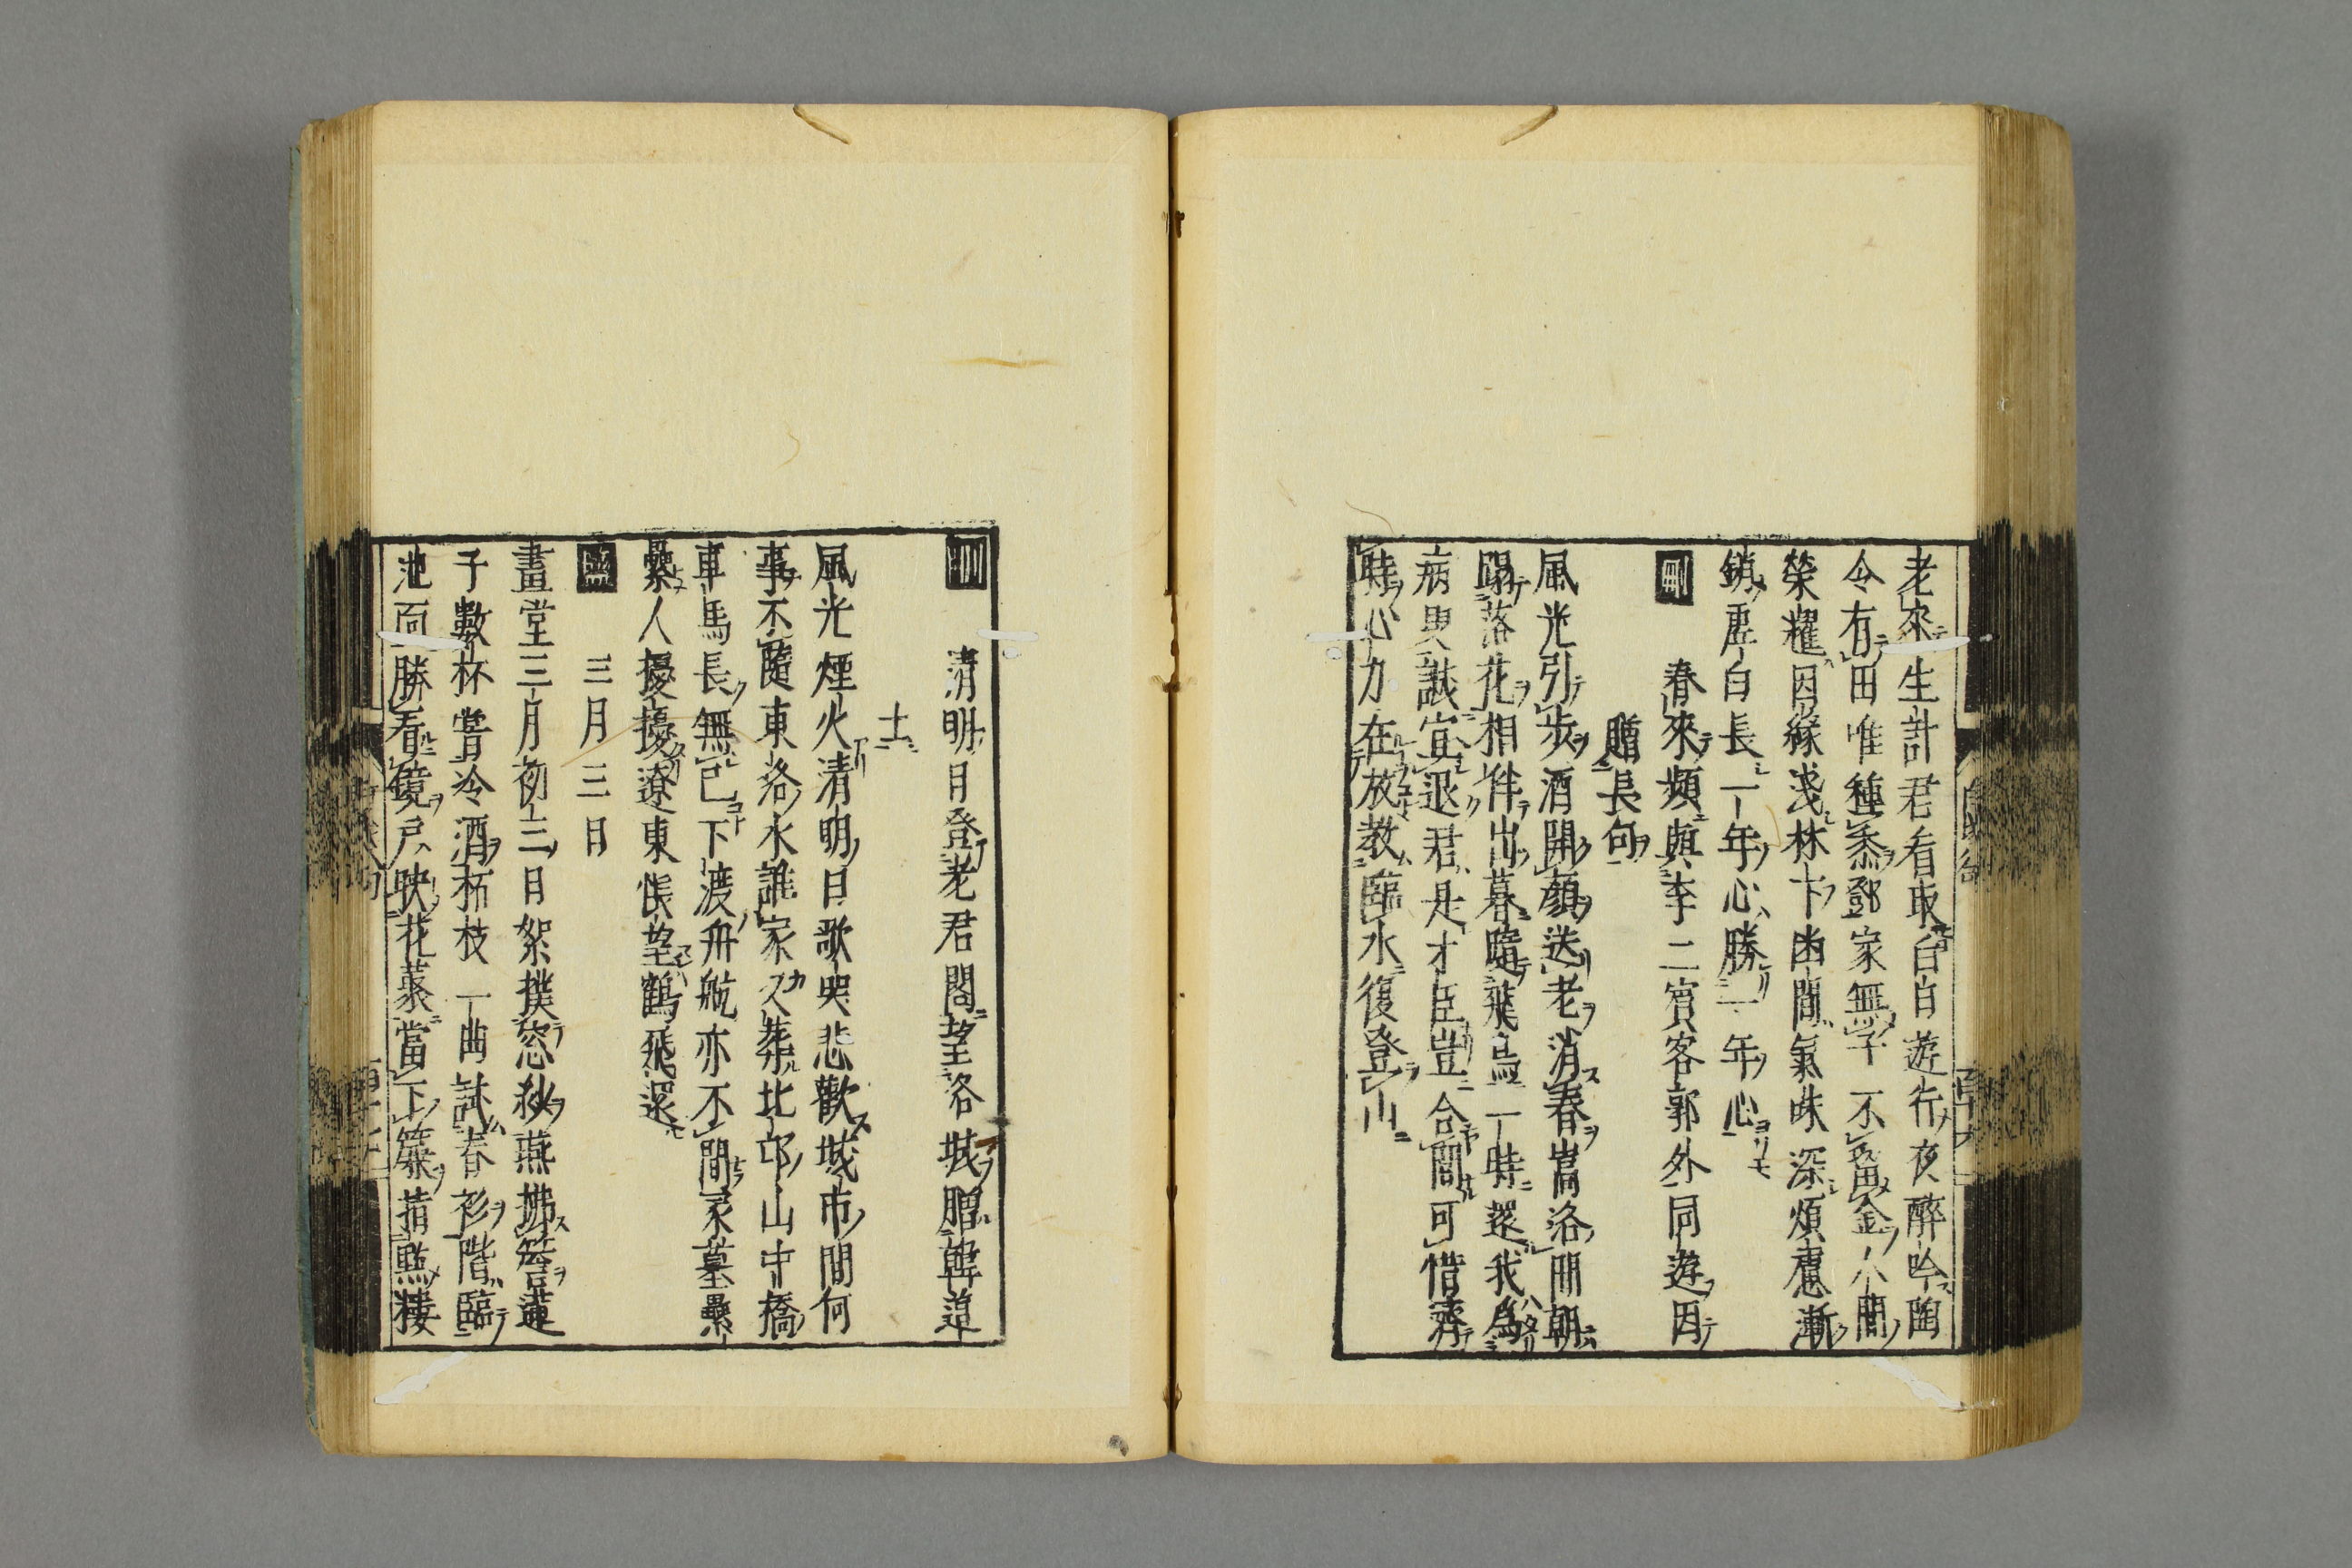 老來生計君看取白日遊行夜醉吟陶
令有田唯種黍鄧家無子不留金人間
榮耀因緣淺林下幽閒氣味深煩慮漸
銷虛白長一年心勝一年心
春來頻與李二賓客郭外同遊因
贈長句
風光引步酒開顏送老消春嵩洛間朝
蹋落花相伴出暮隨飛鳥一時還我為
病叟誠宜退君是才臣豈合閒可惜濟
時心力在放教臨水復登山
清明日登老君閣望洛城贈韓道
士
風光煙火清明日歌哭悲歡城市間何
事不隨東洛水誰家又葬北邙山中橋
車馬長無已下渡舟航亦不閒冢墓纍
纍人擾擾遼東悵望鶴飛還
三月三日
畫堂三月初三日絮撲窓紗燕拂簷蓮
子數杯嘗冷酒柘枝一曲試春衫階臨
池面勝看鏡戶映花叢當下簾指點樓